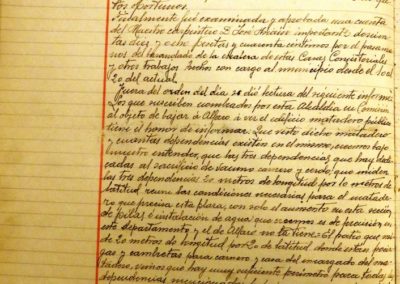 tos oportunos.
Finalmente fué examinada y aprobada una cuenta
del Maestro carpintero D. José Arnáiz importante doscien
tas diez y ocho pesetas y cuarenta céntimos por el
nos del de la escalera de estas Casas Consistoriales
y otros trabajos hechos con cargo al municipio desde el 10 al
20 del actual.
Fuera del orden del dia se dió lectura del siguiente informe
"Los que suscriben nombrados por esta Alcaldia en Comision
al objeto de bajar á Alfaro á ver el edificio matadero público
tiene el honor de informar: Que visto dicho matadero
y cuantas dependencias existen en el mismo, como bajo
nuestro entender que las tres dependencias que hay dedi
cadas al sacrificio de vacuno carnero y cerdo, que miden
las tres dependencias 20 metros de longitud por 10 metros de
latitud reune las condiciones necesarias para el matade
ro que precisa esta plaza, con solo el aumento en esta seccion
de pilas é instalacion de agua que creemos es de precision en
este departamento y el de Alfaro no la tiene = El patio que mi
de 20 metros de longitud por 20 de latitud donde estan
gas y cambretas para carnero y casa del encargado del ma
tadero, vemos que hay muy suficiente perimetro para todas las
dependencias